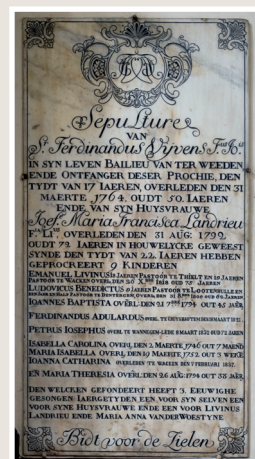 Sepulture
VAN
Sr. Ferdinandus Vivens
IN SYN LEVEN BAILIEU VAN TER WEEDEN
ENDE ONTFANGER DESER PROCHIE, DEN
TYDT VAN 17 IAEREN, OVERLEDEN DEN 31
MAERTE 1764. OUDT 50. IAEREN
ENDE VAN SYN HUYSVRAUWE
Josef. Maria Francisca Landrieu
OVERLEDEN DEN 31 AUG. 1799.
OUDT 72 IAEREN IN HOUWELYCKE GEWEEST
SYNDE DEN TYDT VAN 22 IAEREN HEBBEN
GEPROCREERT 9 KINDEREN
EMANUEL LIVINUS IAEREN PASTOOR TE THIELT EN 19 JAEREN
PASTOOR TE WACKEN OVERL. DEN 1818 OUD 75 JAEREN
LUDOVICUS BENEDICTUS JAEREN PASTOOR TE LOOTENHULLE
PASTOOR TE DENTERGEM, OVERL. DEN OUD 60 JAEREN
IOANNES BAPTISTA OVERL. DEN 21 1794 OUT 45 JAER
FERDINANDUS ADULARDUS OVERL. TE
PETRUS IOSEPHUS OVERL. TE WANNEGEM-LEDE 8 MAERT 1832 OUD 72 JAREN
ISABELLA CAROLINA OVERL. DEN 2 MAERTE 1746 OUT 7 MAEND
MARIA ISABELLA OVERL. DEN 10 MAERTE 1752 OUT 3 WEKE
IOANNA CATHARINA OVERLEDEN TE WACKEN DEN 7 FEBRUARI
EN MARIA THERESIA OVERL. DEN 26 AUG. 1794 OUT 38 JAER
DEN WELCKEN GEFONDEERT HEEFT 3. EEUWIGHE
GESONGEN IAERGETYDEN EEN VOOR SYN SELVEN EEN
VOOR SYNE HUYSVRAUWE ENDE EEN VOOR LIVINUS
LANDRIEU ENDE MARIA ANNA VANDERWOESTYNE
Bidt voor de Zielen